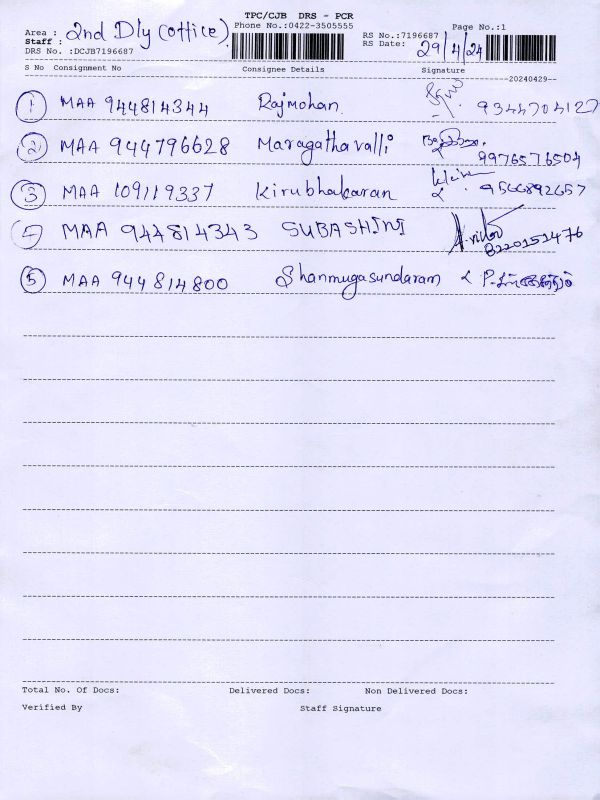 TPC/CJB DRS - PCR
Phone No.:0422-3505555
Page No.:1
Area : 2nd Dly (office)
Staff :
DRS No. :DCJB7196687
RS No.:7196687
RS Date: 29/4/24
S No Consignment No Consignee Details Signature
--20240429--
1 MAA 944814344 Rajmohan 9344704127
2 MAA 944796628 Maragathavalli 9976576504
3 MAA 109119337 Kirubhakaran 9566892657
MAA 944814343 SUBASHINI 8220151476
5 MAA 944814800 Shanmugasundaram
Total No. Of Docs: Delivered Docs: Non Delivered Docs:
Verified By Staff Signature